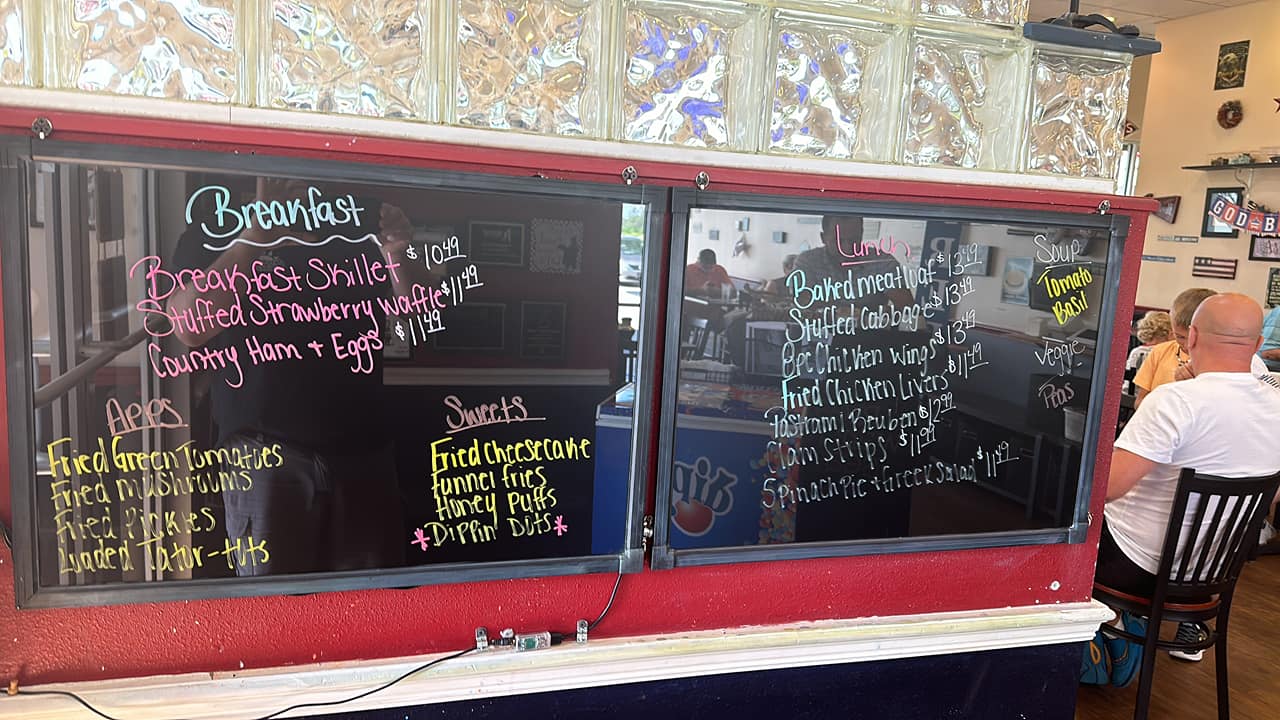 Breakfast
Breakfast Skillet $10.49
Stuffed Strawberry Waffle $11.49
Country Ham + Eggs $11.49
Apps
Fried Green Tomatoes
Fried mushrooms
Fried Pickles
Loaded Tator-tots
Sweets
Fried cheesecake
Funnel fries
Honey Puffs
*Dippin Dots*
Lunch
Baked meatloaf $13.49
Stuffed Cabbage $13.49
8pc Chicken Wings $13.49
Fried Chicken Livers $11.49
Pastrami Reuben $12.99
Clam Strips $11.99
Spinach Pie + Greek Salad $11.49
Soup
Tomato
Basil
Veggie
Peas
GOD B